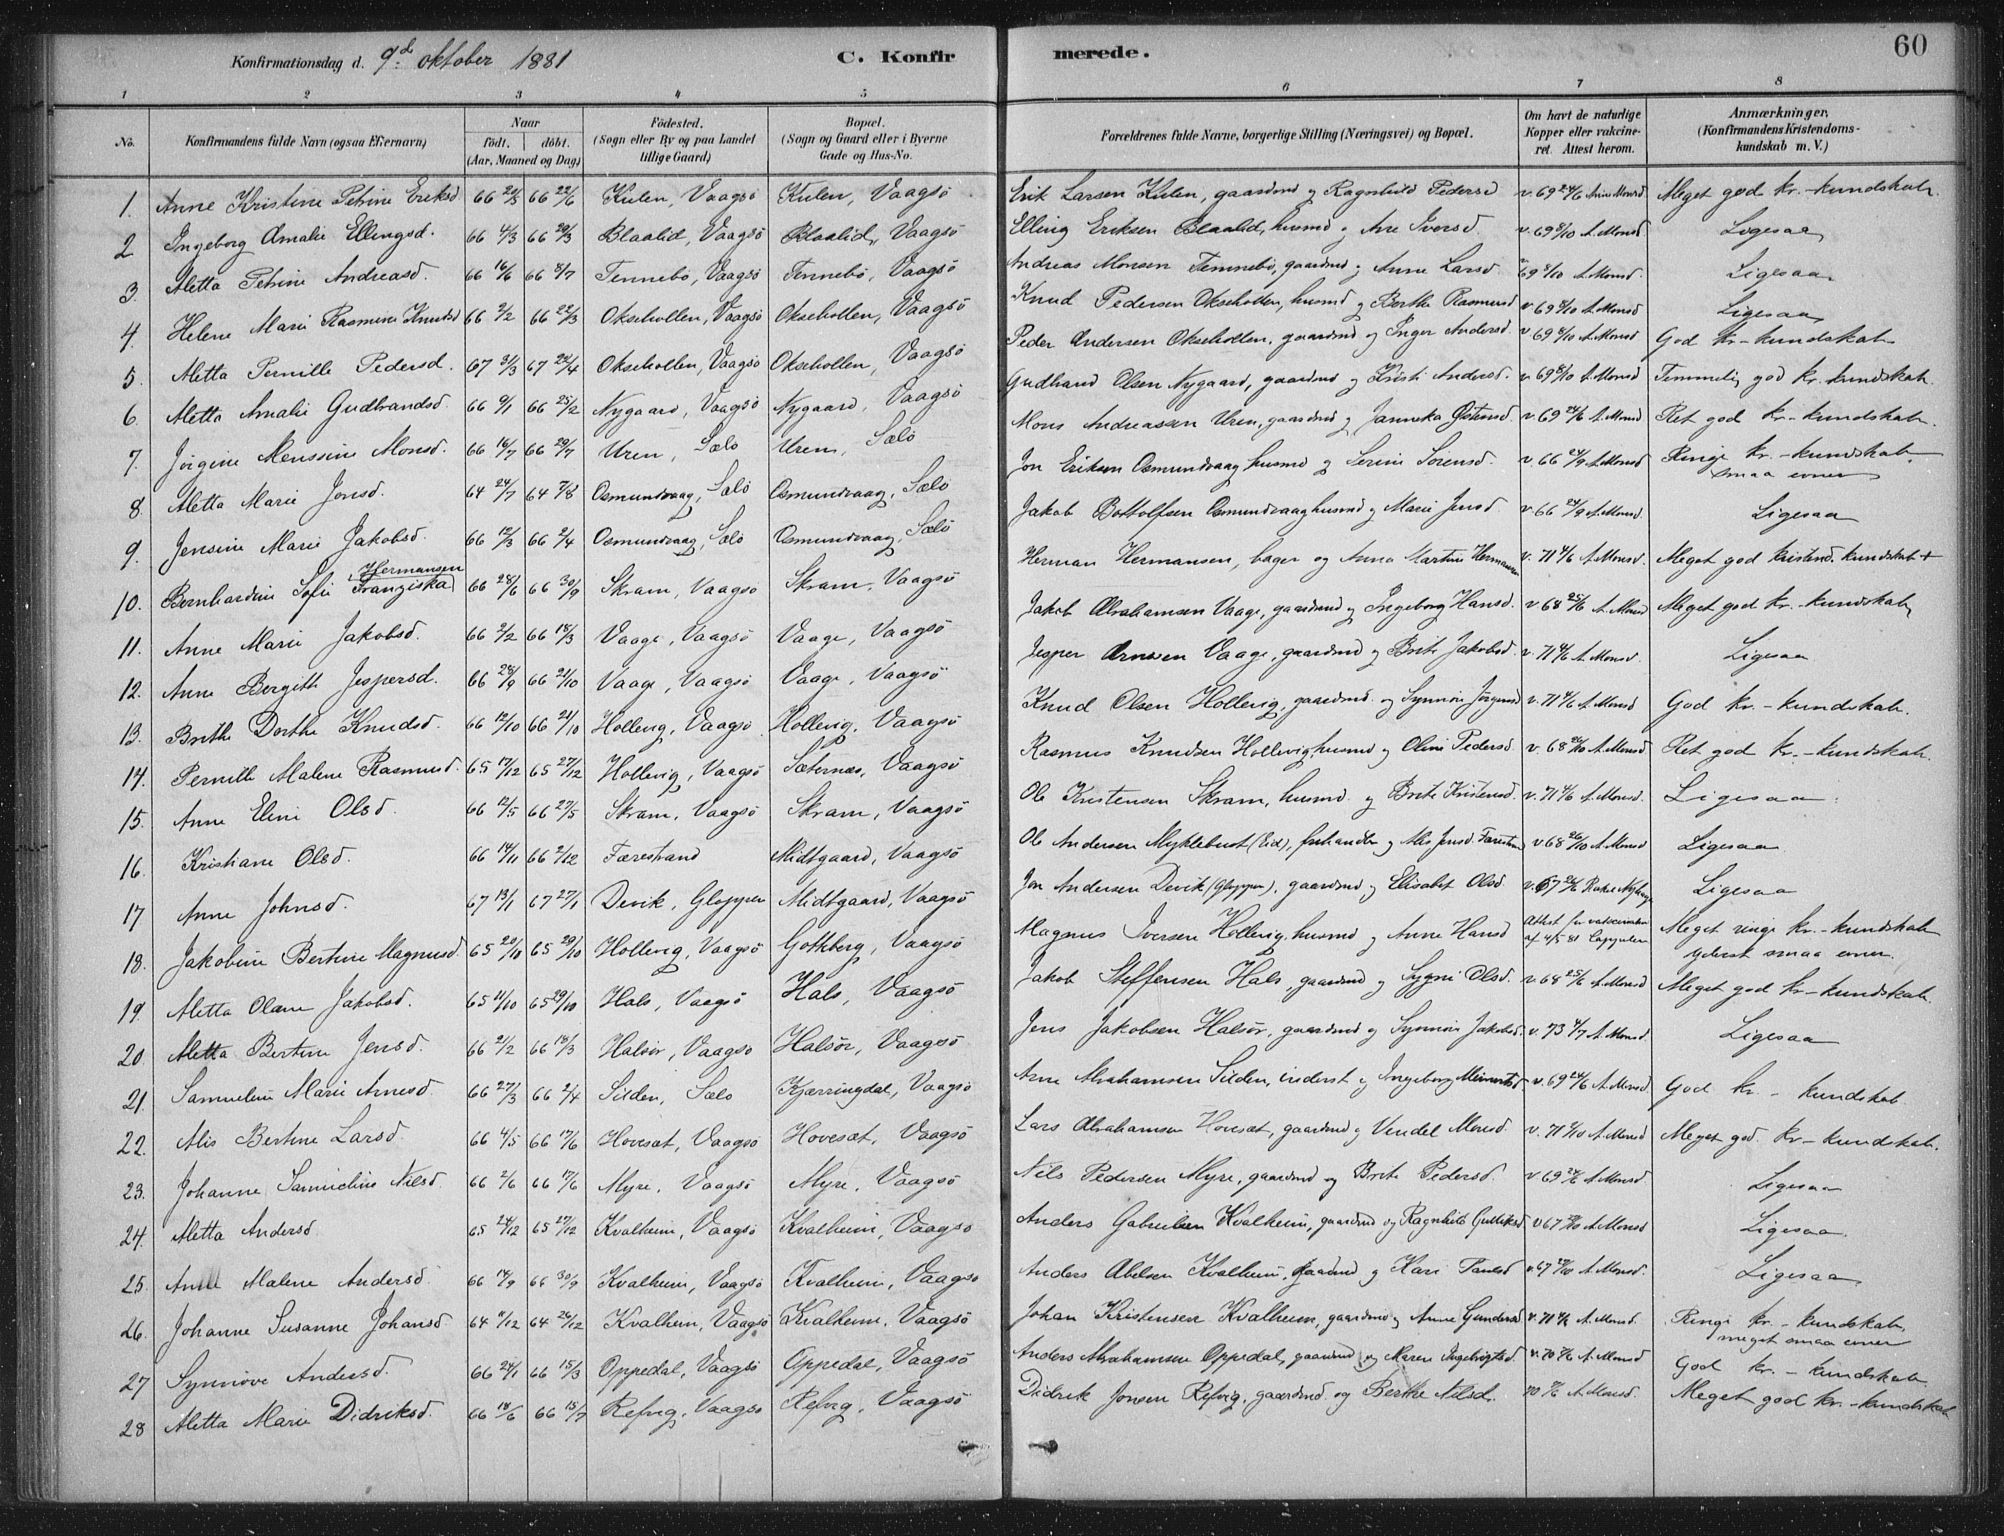 Konfirmationsdag d. 9d. oktober 1881 C. Konfirmerede. 60
1 2 3 4 5 6 7 8
No. Konfirmandens fulde Navn (ogsaa Efternavn) Naar født. døbt. (Aar, Maaned og Dag) Fødested. (Sogn eller By og paa Landet tillige Gaard) Bopæl. (Sogn og Gaard eller i Byerne Gade og Hus-No. Forældrenes fulde Navne, borgerlige Stilling (Næringsvei) og Bopæl. Om havt de naturlige Kopper eller vakcineret. Attest herom. Anmærkninger. (Konfirmandens Kristendomskundskab m. V.)
1. Anne Kristine Petrine Eriksd 66 20/5 66 22/6 Kulen, Vaagsö Kulen, Vaagsö Erik Larsen Kulen, gaardmd og Ragnhild Pedersd v. 69 24/6 Meget god kr.-kundskab.
2 Ingeborg Amalie Ellingsd. 66 4/3 66 29/3 Blaalid, Vaagsö Blaalid, Vaagsö Elling Eriksen Blaalid, husmd og Ane Iversd. v. 69 8/10 A. Monsd. Ligesaa
3. Aletta Petrine Andreasd. 66 16/6 66 8/7 Tennebö, Vaagsö Tennebö, Vaagsö Andreas Monsen Tennebö, gaardmd og Anne Larsd. 69 8/10 A. Monsd. Ligesaa
4. Helene Marie Rasmine Knudsd 66 2/2 66 22/3 Oksehollen, Vaagsö Oksehollen, Vaagsö Knud Pedersen Oksehollen, husmd og Berthe Rasmusd v. 69 8/10 A. Monsd Ligesaa
5. Aletta Pernille Pedersd. 67 31/3 67 24/4 Oksehollen, Vaagsö Oksehollen, Vaagsö Peder Andersen Oksehollen, gaardmd og Inger Andersd. v. 69 8/10 A. Monsd God kr.-kundskab
6. Aletta Amalie Gudbrandsd. 66 9/1 66 25/2 Nygaard, Vaagsö Nygaard, Vaagsö Gudbrand Olsen Nygaard, gaardmd og Kristi Andersd. v. 69 8/10 A. Monsd Temmelig god kr. kundskab.
7. Jörgine Monssine Monsd. 66 16/7 66 29/7 Uren, Sælö Uren, Sælö Mons Andreassen Uren, gaardmd og Janneka Østensd v. 69 24/6 A. Monsd Ret god kr.-kundskab.
8. Aletta Marie Jonsd. 64 24/7 64 7/8 Osmundvaag, Sælö Osmundvaag, Sælö Jon Eriksen Osmundvaag husmd og Serine Sörensd. v. 66 24/9 A. Monsd. Ringe kr.-kundskab. smaa evner
9. Jensine Marie Jakobsd. 66 12/3 66 2/4 Osmundvaag, Sælö Osmundvaag, Sælö Jakob Bottolfsen Osmundvaag husmd og Marie Jensd. v. 66 24/9 A. Monsd. Ligesaa
10. Bernhardine Sofie Franziska Hermansen 66 28/6 66 30/9 Skram, Vaagsö Skram, Vaagsö Herman Hermansen, bager og Anna Martine Hermansen v. 71 4/6 A. Monsd. Meget god kristend. kundskab +
11. Anne Marie Jakobsd. 66 2/2 66 18/3 Vaage, Vaagsö Vaage, Vaagsö Jakob Abrahamsen Vaage, gaardmd og Ingeborg Hansd. v. 68 25/6 A. Monsd Meget god kr.-kundskab
12. Anne Bergith Jespersd. 66 28/9 66 21/10 Vaage, Vaagsö Vaage, Vaagsö Jesper Arnesen Vaage, gaardmd og Brite Jakobsd. v. 71 4/6 A. Monsd. Ligesaa
13. Brithe Dorthe Knudsd. 66 12/10 66 21/10 Hollevig, Vaagsö Hollevig, Vaagsö Knud Olsen Hollevig, gaardmd. og Synnöv Jörgensd v. 71 4/6 A. Monsd God kr.-kundskab.
14. Pernille Malene Rasmusd. 65 17/12 65 27/12 Hollevig, Vaagsö Sæternæs, Vaagsö Rasmus Knudsen Hollevig husmd og Oline Pedersd. v. 68 26/10 A. Monsd Ret god kr.-kundskab.
15. Anne Eline Olsd. 66 12/5 66 27/5 Skram, Vaagsö Skram, Vaagsö Ole Kristensen Skram, husmd. og Brite Kristensd. v. 71 4/6 A. Monsd. Ligesaa.
16. Kristiane Olsd. 66 14/11 66 2/12 Færestrand Midtgaard, Vaagsö Ole Andersen Myklebust (Eid), og Jensd. v 68 26/10 A. Monsd Ligesaa
17 Anne Johnsd. 67 13/1 67 27/1 Devik, Gloppen Midtgaard, Vaagsö Jon Andersen Devik (Gloppen), gaardmd og Elisabet Olsd v. 67 Ligesaa
18. Jakobine Bertine Magnusd. 65 20/10 65 29/10 Hollevig, Vaagsö Gotberg, Vaagsö Magnus Iversen Hollevig, husmd og Anne Hansd Attest for vakcination af 4/5 81 Meget ringe kr.-kundskab yderst smaa evner.
19. Aletta Olave Jakobsd. 65 11/10 65 29/10 Hals, Vaagsö Hals, Vaagsö Jakob Steffensen Hals, gaardmd og Sygni Olsd. v. 68 25/6 A. Monsd Meget god kr-kundskab.
20. Aletta Bertine Jensd. 66 21/2 66 18/3 Halsör, Vaagsö Halsör, Vaagsö Jens Jakobsen Halsör, gaardmd og Synnöv Jakobsd. v. 73 4/7 A. Monsd. Ligesaa
21. Samueline Marie Arnesd 66 27/3 66 2/4 Silden, Sælö Kjærringdal, Vaagsö Arne Abrahamsen Silden, inderst og Ingeborg v. 69 24/6 A. Monsd God kr-kundskab
22. Alis Bertine Larsd. 66 4/5 66 17/6 Hovesæt, Vaagsö Hovesæt, Vaagsö Lars Abrahamsen Hovesæt, gaardmd og Vendel Monsd. v. 71 A. Monsd. Meget god. kr.-kundskab.
23. Johanne Samueline Nilsd. 66 2/6 66 17/6 Myre, Vaagsö Myre, Vaagsö Nils Pedersen Myre, gaardmd og Brite Pedersd. v 69 24/6 A. Monsd Ligesaa
24. Aletta Andersd. 65 24/12 65 27/12 Kvalheim, Vaagsö Kvalheim, Vaagsö Anders Gabrielsen Kvalheim, gaardmd og Ragnhild Gulleiksd v 67 A. Monsd Ligesaa.
25. Malene Andersd. 66 14/9 66 30/9 Kvalheim, Vaagsö Kvalheim, Vaagsö Anders Abelsen Kvalheim, gaardmd og Kari Paulsd v. 67 A. Monsd. Ligesaa
26. Johanne Susanne Johansd 64 11/12 64 26/12 Kvalheim, Vaagsö Kvalheim, Vaagsö Johan Kristensen Kvalheim, gaardmd og Anne Gundersd v. 71 4/6 A. Monsd. Ringe kr.-kundskab, meget smaa evner
27 Synnöve Andersd. 66 24/1 66 15/3 Oppedal, Vaagsö Oppedal, Vaagsö Anders Abrahamsen Oppedal, gaardmd og Maren Ingebrigtsd. v. 70 A. Monsd God kr.-kundskab
28 Aletta Marie Didriksd. 66 18/6 66 15/7 Refvig, Vaagsö Refvig, Vaagsö Didrik Jonsen Refvig, gaardmd. og Berthe Nilsd. 70 A. Monsd. Meget god kr.-kundskab